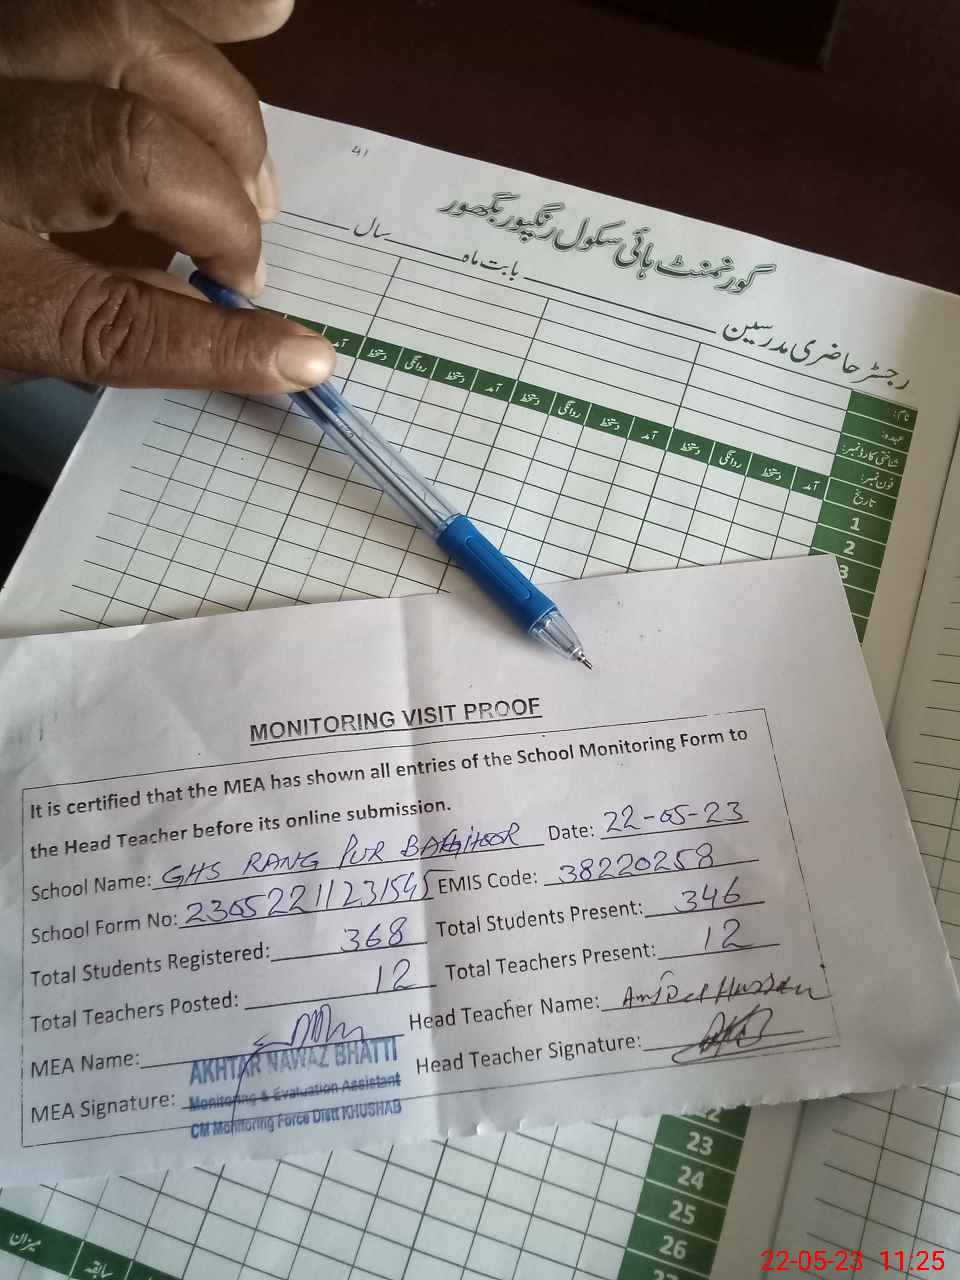 41
گورنمنٹ ہائی سکول رنگپور بگھور
رجسٹر حاضری مدرسین بابت ماہ سال
نام:
عہدہ:
شناختی کارڈ نمبر:
فون نمبر:
تاریخ آمد دستخط روانگی دستخط آمد دستخط روانگی دستخط آمد دستخط روانگی دستخط آمد
1
2
3
MONITORING VISIT PROOF
It is certified that the MEA has shown all entries of the School Monitoring Form to
the Head Teacher before its online submission.
School Name: GHS RANG PUR BAGHOOR Date: 22-05-23
School Form No: 23052211231545 EMIS Code: 38220258
Total Students Registered: 368 Total Students Present: 346
Total Teachers Posted: 12 Total Teachers Present: 12
MEA Name: Head Teacher Name: Amjad Hussain
AKHTAR NAWAZ BHATTI
MEA Signature: Head Teacher Signature:
Monitoring & Evaluation Assistant
CM Monitoring Force Distt KHUSHAB
22
23
24
25
26
27
میزان
سابقہ
22-05-23 11:25